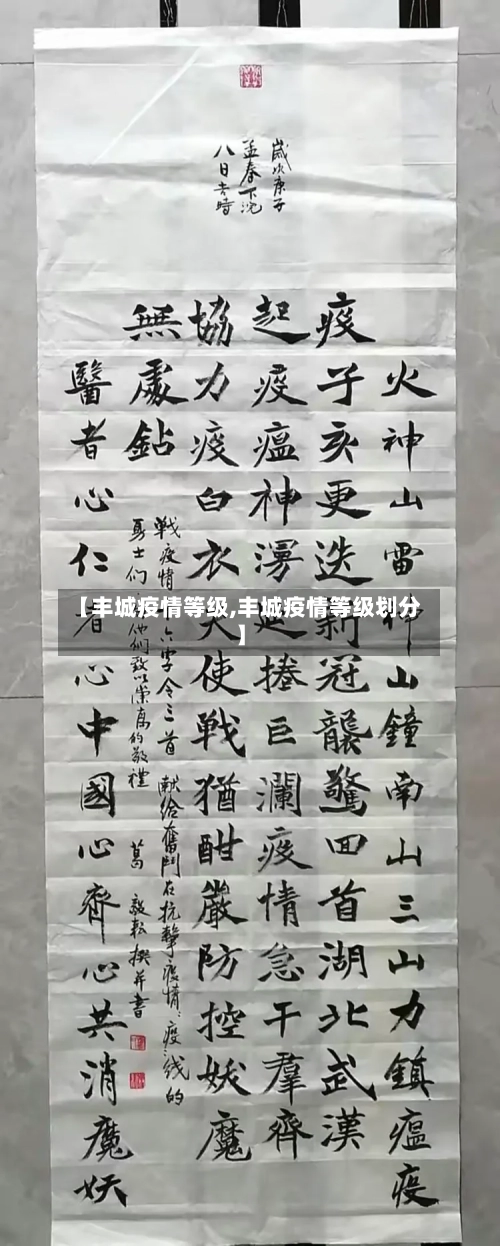 火神山雷神山鐘南山三山力鎮瘟疫
疫子亥更迭新冠襲驚回首湖北武漢
起疫瘟神漫 捲巨瀾疫情急干羣齊
協力疫白衣天使戰猶酣嚴防控妖魔
無處鉆
醫者心仁者心中國心齊心共消魔妖
戰疫情 六字令三首 献给奮鬥在抗擊疫情 疫 线的
勇士们 他們致以崇高的敬禮 葛 毅 撰并書
歲次庚子
孟春下浣
八日吉時
【丰城疫情等级,丰城疫情等级划分
】